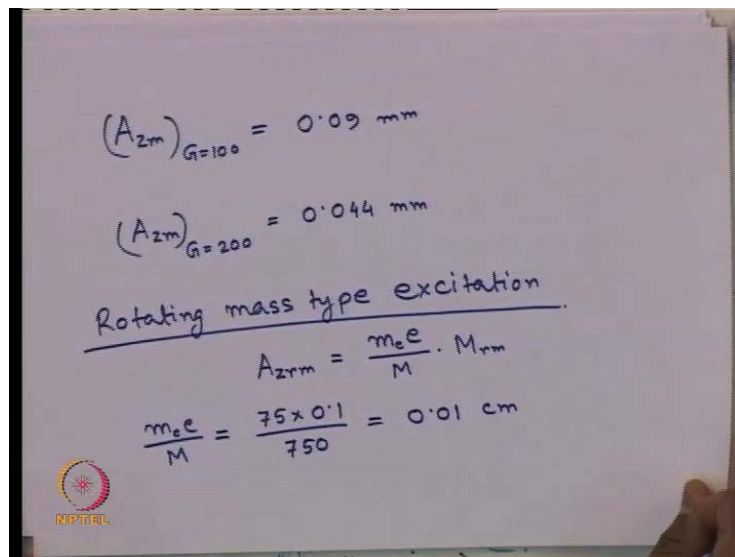 (Azm)G=100 = 0.09 mm
(Azm)G=200 = 0.044 mm
Rotating mass type excitation
Azrm = mee/M . Mrm
mee/M = 75 x 0.1/750 = 0.01 cm
NPTEL